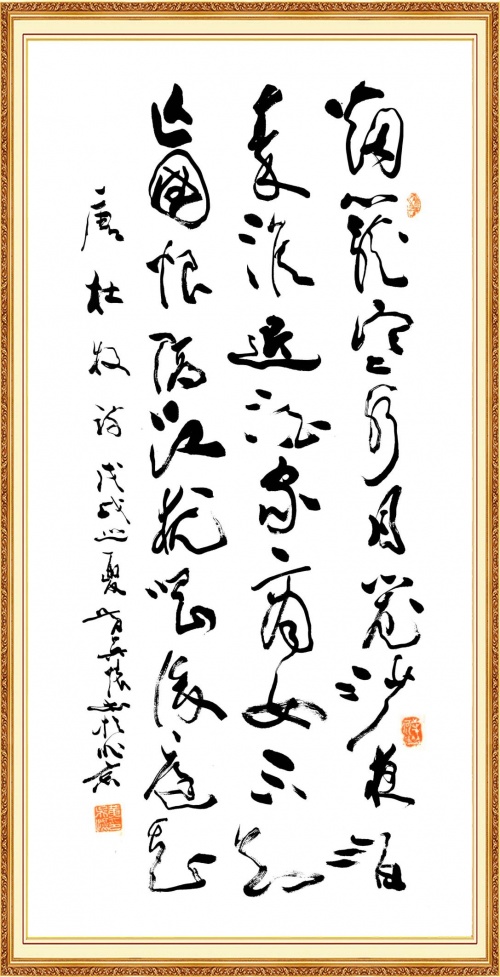 烟籠寒水月籠沙夜泊
秦淮近酒家商女不知
亡國恨隔江猶唱後庭花
唐杜牧詩戊戌之夏於北京